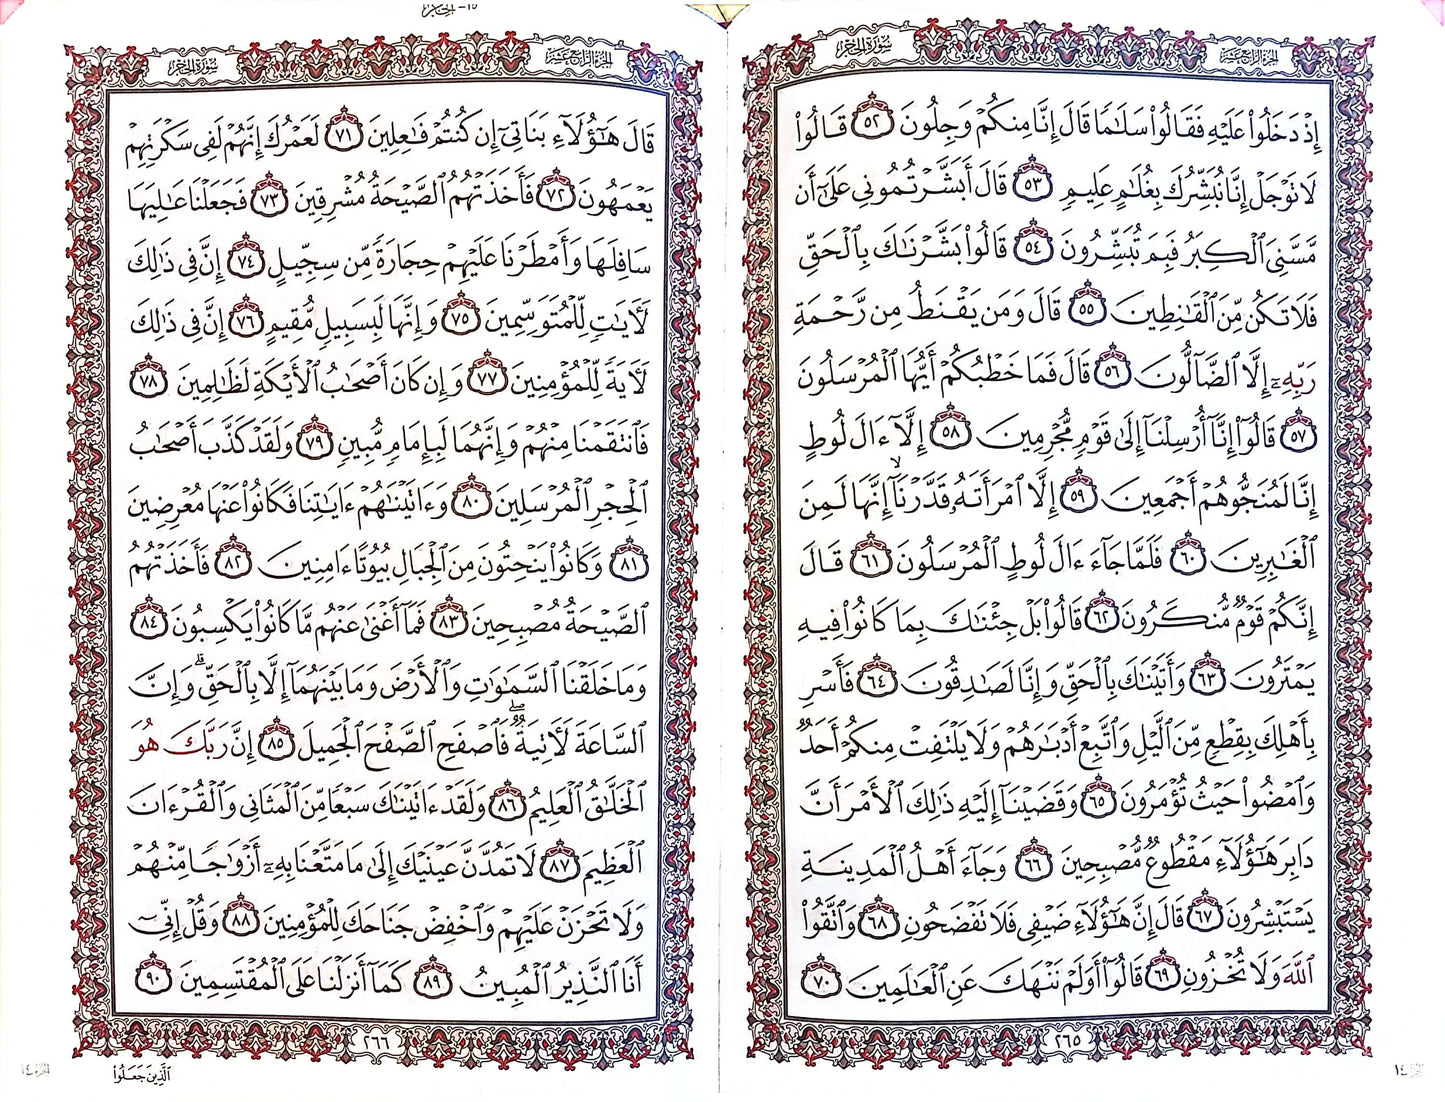 ١٥- الحجر
الجزء الرابع عشر
سورة الحجر
إِذْ دَخَلُوا۟ عَلَيْهِ فَقَالُوا۟ سَلَـٰمًا قَالَ إِنَّا مِنكُمْ وَجِلُونَ ٥٢ قَالُوا۟
لَا تَوْجَلْ إِنَّا نُبَشِّرُكَ بِغُلَـٰمٍ عَلِيمٍ ٥٣ قَالَ أَبَشَّرْتُمُونِى عَلَىٰٓ أَن
مَّسَّنِىَ ٱلْكِبَرُ فَبِمَ تُبَشِّرُونَ ٥٤ قَالُوا۟ بَشَّرْنَـٰكَ بِٱلْحَقِّ
فَلَا تَكُن مِّنَ ٱلْقَـٰنِطِينَ ٥٥ قَالَ وَمَن يَقْنَطُ مِن رَّحْمَةِ
رَبِّهِۦٓ إِلَّا ٱلضَّآلُّونَ ٥٦ قَالَ فَمَا خَطْبُكُمْ أَيُّهَا ٱلْمُرْسَلُونَ
٥٧ قَالُوٓا۟ إِنَّآ أُرْسِلْنَآ إِلَىٰ قَوْمٍ مُّجْرِمِينَ ٥٨ إِلَّآ ءَالَ لُوطٍ
إِنَّا لَمُنَجُّوهُمْ أَجْمَعِينَ ٥٩ إِلَّا ٱمْرَأَتَهُۥ قَدَّرْنَآ ۙ إِنَّهَا لَمِنَ
ٱلْغَـٰبِرِينَ ٦٠ فَلَمَّا جَآءَ ءَالَ لُوطٍ ٱلْمُرْسَلُونَ ٦١ قَالَ
إِنَّكُمْ قَوْمٌ مُّنكَرُونَ ٦٢ قَالُوا۟ بَلْ جِئْنَـٰكَ بِمَا كَانُوا۟ فِيهِ
يَمْتَرُونَ ٦٣ وَأَتَيْنَـٰكَ بِٱلْحَقِّ وَإِنَّا لَصَـٰدِقُونَ ٦٤ فَأَسْرِ
بِأَهْلِكَ بِقِطْعٍ مِّنَ ٱلَّيْلِ وَٱتَّبِعْ أَدْبَـٰرَهُمْ وَلَا يَلْتَفِتْ مِنكُمْ أَحَدٌ
وَٱمْضُوا۟ حَيْثُ تُؤْمَرُونَ ٦٥ وَقَضَيْنَآ إِلَيْهِ ذَٰلِكَ ٱلْأَمْرَ أَنَّ
دَابِرَ هَـٰٓؤُلَآءِ مَقْطُوعٌ مُّصْبِحِينَ ٦٦ وَجَآءَ أَهْلُ ٱلْمَدِينَةِ
يَسْتَبْشِرُونَ ٦٧ قَالَ إِنَّ هَـٰٓؤُلَآءِ ضَيْفِى فَلَا تَفْضَحُونِ ٦٨ وَٱتَّقُوا۟
ٱللَّهَ وَلَا تُخْزُونِ ٦٩ قَالُوٓا۟ أَوَلَمْ نَنْهَكَ عَنِ ٱلْعَـٰلَمِينَ ٧٠
٢٦٥
الجزء ١٤
الجزء الرابع عشر
سورة الحجر
قَالَ هَـٰٓؤُلَآءِ بَنَاتِىٓ إِن كُنتُمْ فَـٰعِلِينَ ٧١ لَعَمْرُكَ إِنَّهُمْ لَفِى سَكْرَتِهِمْ
يَعْمَهُونَ ٧٢ فَأَخَذَتْهُمُ ٱلصَّيْحَةُ مُشْرِقِينَ ٧٣ فَجَعَلْنَا عَـٰلِيَهَا
سَافِلَهَا وَأَمْطَرْنَا عَلَيْهِمْ حِجَارَةً مِّن سِجِّيلٍ ٧٤ إِنَّ فِى ذَٰلِكَ
لَـَٔايَـٰتٍ لِّلْمُتَوَسِّمِينَ ٧٥ وَإِنَّهَا لَبِسَبِيلٍ مُّقِيمٍ ٧٦ إِنَّ فِى ذَٰلِكَ
لَـَٔايَةً لِّلْمُؤْمِنِينَ ٧٧ وَإِن كَانَ أَصْحَـٰبُ ٱلْأَيْكَةِ لَظَـٰلِمِينَ ٧٨
فَٱنتَقَمْنَا مِنْهُمْ وَإِنَّهُمَا لَبِإِمَامٍ مُّبِينٍ ٧٩ وَلَقَدْ كَذَّبَ أَصْحَـٰبُ
ٱلْحِجْرِ ٱلْمُرْسَلِينَ ٨٠ وَءَاتَيْنَـٰهُمْ ءَايَـٰتِنَا فَكَانُوا۟ عَنْهَا مُعْرِضِينَ
٨١ وَكَانُوا۟ يَنْحِتُونَ مِنَ ٱلْجِبَالِ بُيُوتًا ءَامِنِينَ ٨٢ فَأَخَذَتْهُمُ
ٱلصَّيْحَةُ مُصْبِحِينَ ٨٣ فَمَآ أَغْنَىٰ عَنْهُم مَّا كَانُوا۟ يَكْسِبُونَ ٨٤
وَمَا خَلَقْنَا ٱلسَّمَـٰوَٰتِ وَٱلْأَرْضَ وَمَا بَيْنَهُمَآ إِلَّا بِٱلْحَقِّ ۗ وَإِنَّ
ٱلسَّاعَةَ لَـَٔاتِيَةٌ ۖ فَٱصْفَحِ ٱلصَّفْحَ ٱلْجَمِيلَ ٨٥ إِنَّ رَبَّكَ هُوَ
ٱلْخَلَّـٰقُ ٱلْعَلِيمُ ٨٦ وَلَقَدْ ءَاتَيْنَـٰكَ سَبْعًا مِّنَ ٱلْمَثَانِى وَٱلْقُرْءَانَ
ٱلْعَظِيمَ ٨٧ لَا تَمُدَّنَّ عَيْنَيْكَ إِلَىٰ مَا مَتَّعْنَا بِهِۦٓ أَزْوَٰجًا مِّنْهُمْ
وَلَا تَحْزَنْ عَلَيْهِمْ وَٱخْفِضْ جَنَاحَكَ لِلْمُؤْمِنِينَ ٨٨ وَقُلْ إِنِّىٓ
أَنَا ٱلنَّذِيرُ ٱلْمُبِينُ ٨٩ كَمَآ أَنزَلْنَا عَلَى ٱلْمُقْتَسِمِينَ ٩٠
٢٦٦
ٱلَّذِينَ جَعَلُوا۟
الجزء ١٤